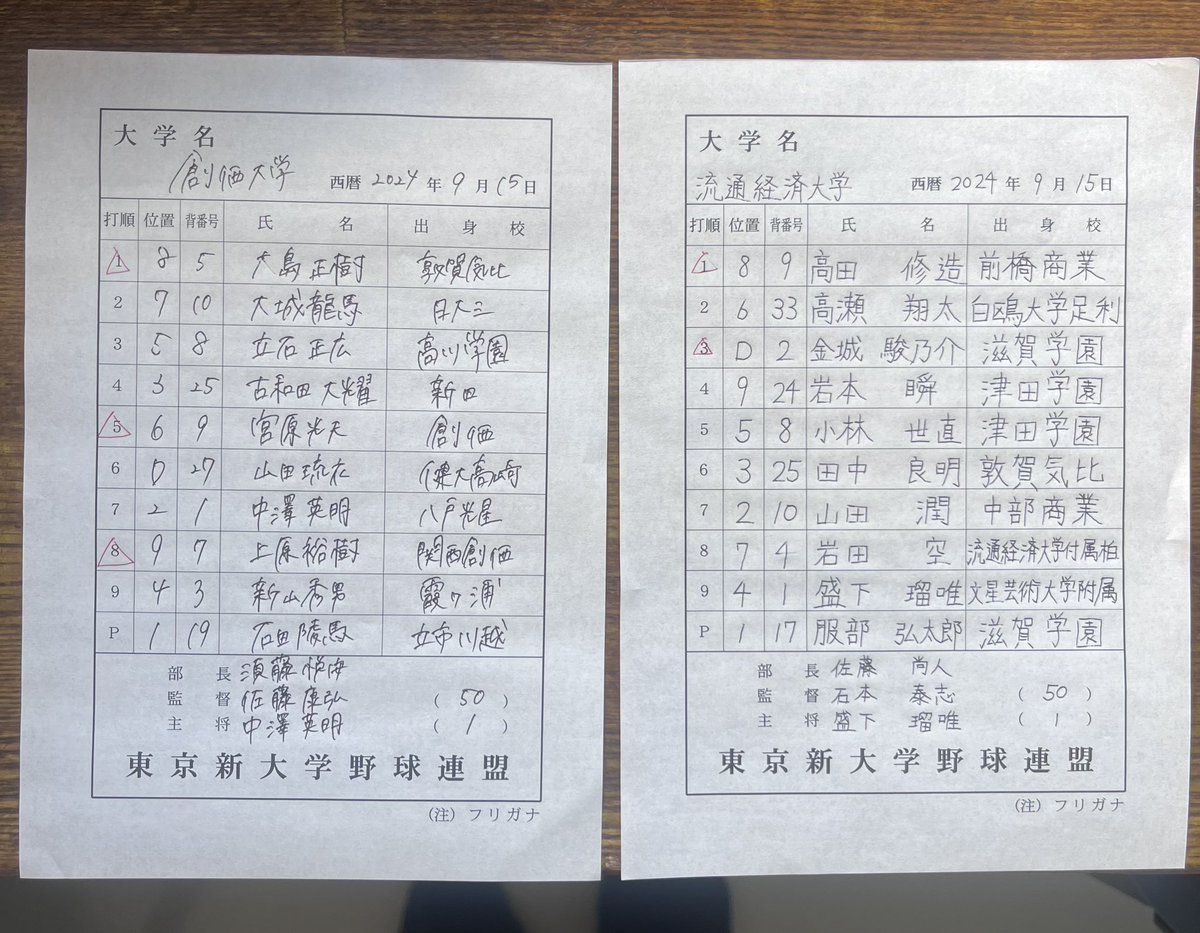 大学名
創価大学 西暦 2024 年 9 月 15 日
打順 位置 背番号 氏名 出身校
1 8 5 大島正樹 敦賀気比
2 7 10 大城龍馬 日大三
3 5 8 立石正広 高川学園
4 3 25 古和田大耀 新田
5 6 9 宮原光夫 創価
6 D 27 山田琉衣 健大高崎
7 2 1 中澤英明 八戸光星
8 9 7 上原裕樹 関西創価
9 4 3 新山秀男 霞ヶ浦
P 1 19 石田陵馬 立命川越
部長 須藤
監督 佐藤康弘 (50)
主将 中澤英明 (1)
東京新大学野球連盟
(注) フリガナ
大学名
流通経済大学 西暦 2024 年 9 月 15 日
打順 位置 背番号 氏名 出身校
1 8 9 高田 修造 前橋商業
2 6 33 高瀬 翔太 白鴎大学足利
3 D 2 金城 駿乃介 滋賀学園
4 9 24 岩本 瞬 津田学園
5 5 8 小林 世直 津田学園
6 3 25 田中 良明 敦賀気比
7 2 10 山田 潤 中部商業
8 7 4 岩田 空 流通経済大学付属柏
9 4 1 盛下 瑠唯 文星芸術大学附属
P 1 17 服部 弘太郎 滋賀学園
部長 佐藤 尚人
監督 石本 泰志 (50)
主将 盛下 瑠唯 (1)
東京新大学野球連盟
(注) フリガナ